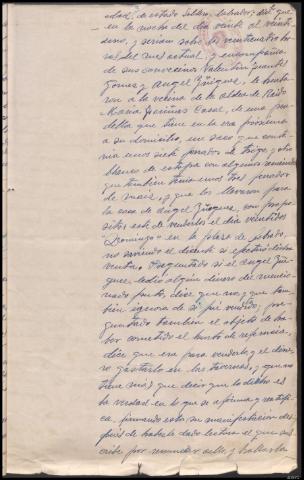 edad, de estado soltero, labrador; dijo que
en la noche del día veinte al veinti
uno, y serían sobre las veinticuatro ho
ras del mes actual, y en compañía
de sus convecinos Valentin
Gomez y Angel Zúñiguez, le hurta
ron a la vecina de la aldea de
Maria Casal, de una pa
nella que tiene en la era próxima
a su domicilio, un saco que conte
nía unos siete ferrados de trigo, y otro
blanco de estopa con algunos remiendos
que tambien tenia unos tres ferrados
de maiz, y que los llevaron para
la casa de Angel Zúñiguez, con propo
sito este de venderlos el día veintidos
"Domingo" en la plaza de
no sabiendo el dicente si efectuó dicha
venta. Preguntado si el Angel Zúñi
guez, le dió algun dinero del mencio
nado hurto, dice que no, y que tam
bien ignora si fué vendido, pre
guntado tambien el objeto de ha
ber cometido el hurto de referencia,
dice que era para venderlo, y el dine
ro gastarlo en las tavernas, y que no
tiene mas que decir que lo dicho es
la verdad en lo que se afirma y ratifi
ca, firmando esta su manifestación des
pués de haberla dado lectura el que sus
cribe por renunciar ella, y hallarla